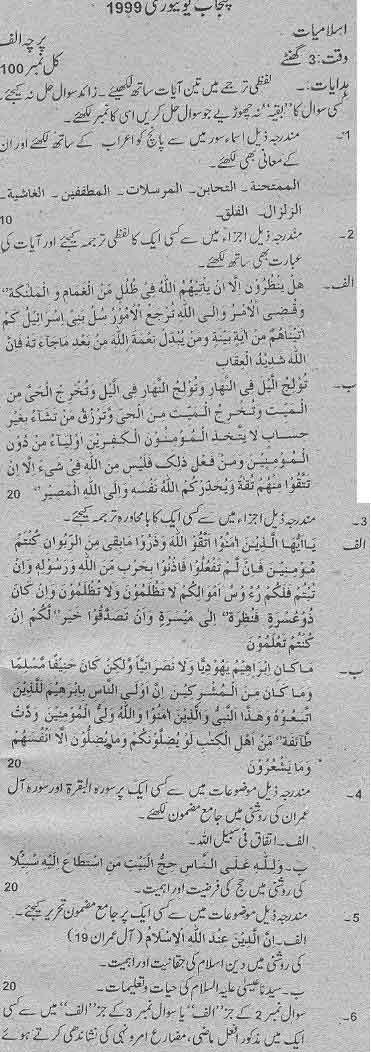 پنجاب یونیورسٹی 1999
اسلامیات
پرچہ الف
وقت: 3 گھنٹے
کل نمبر 100
ہدایات:۔ لفظی ترجمے میں تین آیات ساتھ لکھیے۔ زائد سوال حل نہ کیجیے۔
کسی سوال کا "بقیہ" نہ چھوڑیے جو سوال حل کریں اسی کا نمبر لکھیے۔
1۔ مندرجہ ذیل اسماء سور میں سے پانچ کو اعراب کے ساتھ لکھئے اور ان
کے معانی بھی لکھئے۔
الممتحنة۔ التحابن۔ المرسلات۔ المطففین۔ الغاشیة۔
الزلزال۔ الفلق۔ 10
2۔ مندرجہ ذیل اجزاء میں سے کسی ایک کا لفظی ترجمہ کیجئے اور آیات کی
عبارت بھی ساتھ لکھئے۔
الف۔ هَلْ یَنْظُرُوْنَ اِلَّا اَنْ یَاْتِیَهُمُ اللّٰهُ فِیْ ظُلَلٍ مِّنَ الْغَمَامِ وَ الْمَلٰٓئِكَةُ
وَقُضِیَ الْاَمْرُ وَاِلَی اللّٰهِ تُرْجَعُ الْاُمُوْرُ سَلْ بَنِیْ اِسْرَائِیْلَ كَمْ
اٰتَیْنَاهُمْ مِنْ اٰیَةٍ بَیِّنَةٍ وَمَنْ یُّبَدِّلْ نِعْمَةَ اللّٰهِ مِنْ بَعْدِ مَاجَآءَ تْهُ فَاِنَّ
اللّٰهَ شَدِیْدُ الْعِقَاب
ب۔ تُوْلِجُ الَّیْلَ فِی النَّهَارِ وَتُوْلِجُ النَّهَارَ فِی الَّیْلِ وَتُخْرِجُ الْحَیَّ مِنَ
الْمَیِّتِ وَتُخْرِجُ الْمَیِّتَ مِنَ الْحَیِّ وَتَرْزُقُ مَنْ تَشَآءُ بِغَیْرِ
حِسَابٍ لَا یَتَّخِذِ الْمُؤْمِنُوْنَ الْكٰفِرِیْنَ اَوْلِیَآءَ مِنْ دُوْنِ
الْمُؤْمِنِیْنَ وَمَنْ فَعَلَ ذٰلِكَ فَلَیْسَ مِنَ اللّٰهِ فِیْ شَیْءٍ اِلَّا اَنْ
تَتَّقُوْا مِنْهُمْ تُقٰةً وَیُحَذِّرُكُمُ اللّٰهُ نَفْسَهُ وَاِلَی اللّٰهِ الْمَصِیْرُ 20
3۔ مندرجہ ذیل اجزاء میں سے کسی ایک کا بامحاورہ ترجمہ کیجئے۔
الف یَااَیُّهَا الَّذِیْنَ اٰمَنُوا اتَّقُوْا اللّٰهَ وَذَرُوْا مَابَقِیَ مِنَ الرِّبٰوا اِنْ كُنْتُمْ
مُؤْمِنِیْنَ فَاِنْ لَّمْ تَفْعَلُوْا فَاْذَنُوْا بِحَرْبٍ مِّنَ اللّٰهِ وَرَسُوْلِهِ وَاِنْ
تُبْتُمْ فَلَكُمْ رُءُ وْسُ اَمْوَالِكُمْ لَا تَظْلِمُوْنَ وَلَا تُظْلَمُوْنَ وَاِنْ كَانَ
ذُوْ عُسْرَةٍ فَنَظِرَةٌ اِلٰی مَیْسَرَةٍ وَاَنْ تَصَدَّقُوْا خَیْرٌ لَّكُمْ اِنْ
كُنْتُمْ تَعْلَمُوْنَ
ب۔ مَا كَانَ اِبْرَاهِیْمُ یَهُوْدِیًّا وَلَا نَصْرَانِیًّا وَلٰكِنْ كَانَ حَنِیْفًا مُّسْلِمًا
وَمَا كَانَ مِنَ الْمُشْرِكِیْنَ اِنَّ اَوْلَی النَّاسِ بِاِبْرٰهِیْمَ لَلَّذِیْنَ
اتَّبَعُوْهُ وَهٰذَا النَّبِیُّ وَالَّذِیْنَ اٰمَنُوْا وَاللّٰهُ وَلِیُّ الْمُؤْمِنِیْنَ وَدَّتْ
طَّآئِفَةٌ مِّنْ اَهْلِ الْكِتٰبِ لَوْ یُضِلُّوْنَكُمْ وَمَا یُضِلُّوْنَ اِلَّا اَنْفُسَهُمْ
وَمَا یَشْعُرُوْنَ 20
4۔ مندرجہ ذیل موضوعات میں سے کسی ایک پر سورہ البقرۃ اور سورہ آل
عمران کی روشنی میں جامع مضمون لکھئے۔
الف۔ انفاق فی سبیل اللہ۔
ب۔ وَلِلّٰهِ عَلَی النَّاسِ حِجُّ الْبَیْتِ مَنِ اسْتَطَاعَ اِلَیْهِ سَبِیْلًا
کی روشنی میں حج کی فرضیت اور اہمیت۔ 20
5۔ مندرجہ ذیل موضوعات میں سے کسی ایک پر جامع مضمون تحریر کیجئے۔
الف۔ اِنَّ الدِّیْنَ عِنْدَ اللّٰهِ الْاِسْلَامُ (آل عمران 19)
کی روشنی میں دین اسلام کی حقانیت اور اہمیت۔
ب۔ سیدنا عیسیٰ علیہ السلام کی حیات و تعلیمات۔ 20
6۔ سوال نمبر 2 کے جز "الف" یا سوال نمبر 3 کے جز "الف" میں سے کسی
ایک میں مذکور افعل ماضی، مضارع امر و نہی کی نشاندہی کرتے ہوئے